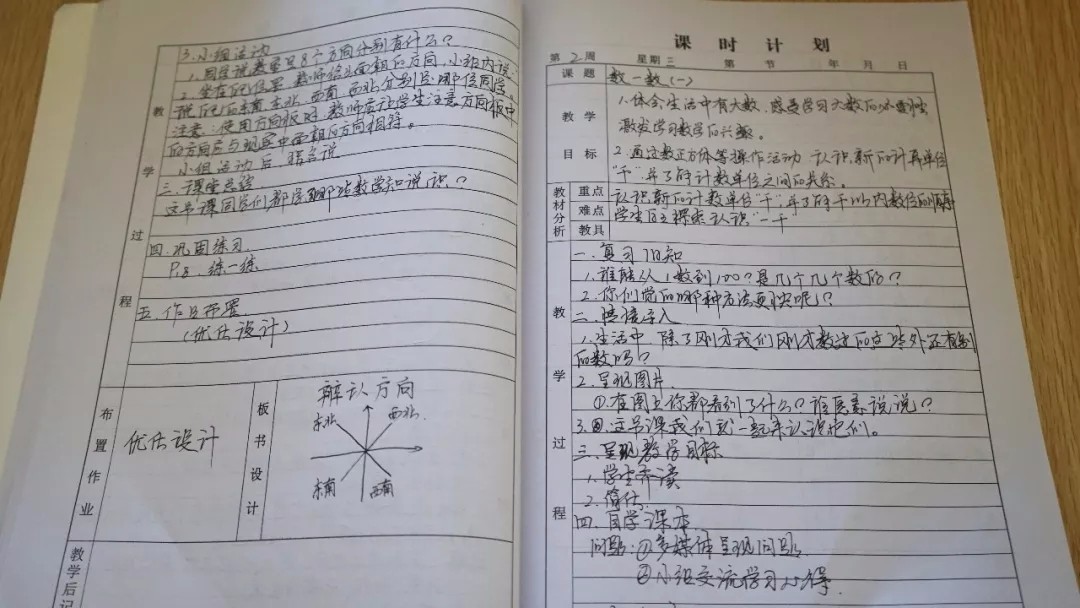 教学过程
3.小组活动
1.同学说教室里8个方向分别有什么?
2.坐在座位里,教师给出面朝的方向,小组内说一
说你的东南、东北、西南、西北分别是哪位同学。
注意:使用方向板时,教师要让学生注意方向板中
的方向应与现实中面朝的方向相符。
小组活动后,
三.课堂总结
这节课同学们都学到哪些数学知识?
四.巩固练习
P.8 练一练
五.作业布置
(优佑设计)
布置作业
优佑设计
板书设计
辩认方向
东北
西北
东南
西南
教学后记
课时计划
第2周 星期三 第 节 年 月 日
课题 数一数(一)
教学目标
1.体会生活中有大数,感受学习大数的必要性,
激发学习数学的兴趣。
2.通过数正方体等操作活动 认识新的计算单位
“千”,并了解计数单位之间的关系。
教材分析
重点 认识新的计数单位“千”,并了解千以内数位的顺序
难点 学生自主探索认识“一千”
教具
教学过程
一.复习旧知
1.谁能从1数到100?是几个几个数的?
2.你们觉的哪种方法更快呢?
二.情境导入
1.生活中,除了刚才我们刚才数过的这些外还有别
的数吗?
2.呈现图片
①.在图上你都看到了什么?谁愿意说说?
3.②.这节课我们就一起来认识它们。
三.呈现教学目标
1.学生齐读
2.简估
四.自学课本
问题:①多媒体呈现问题
②小组交流学习心得